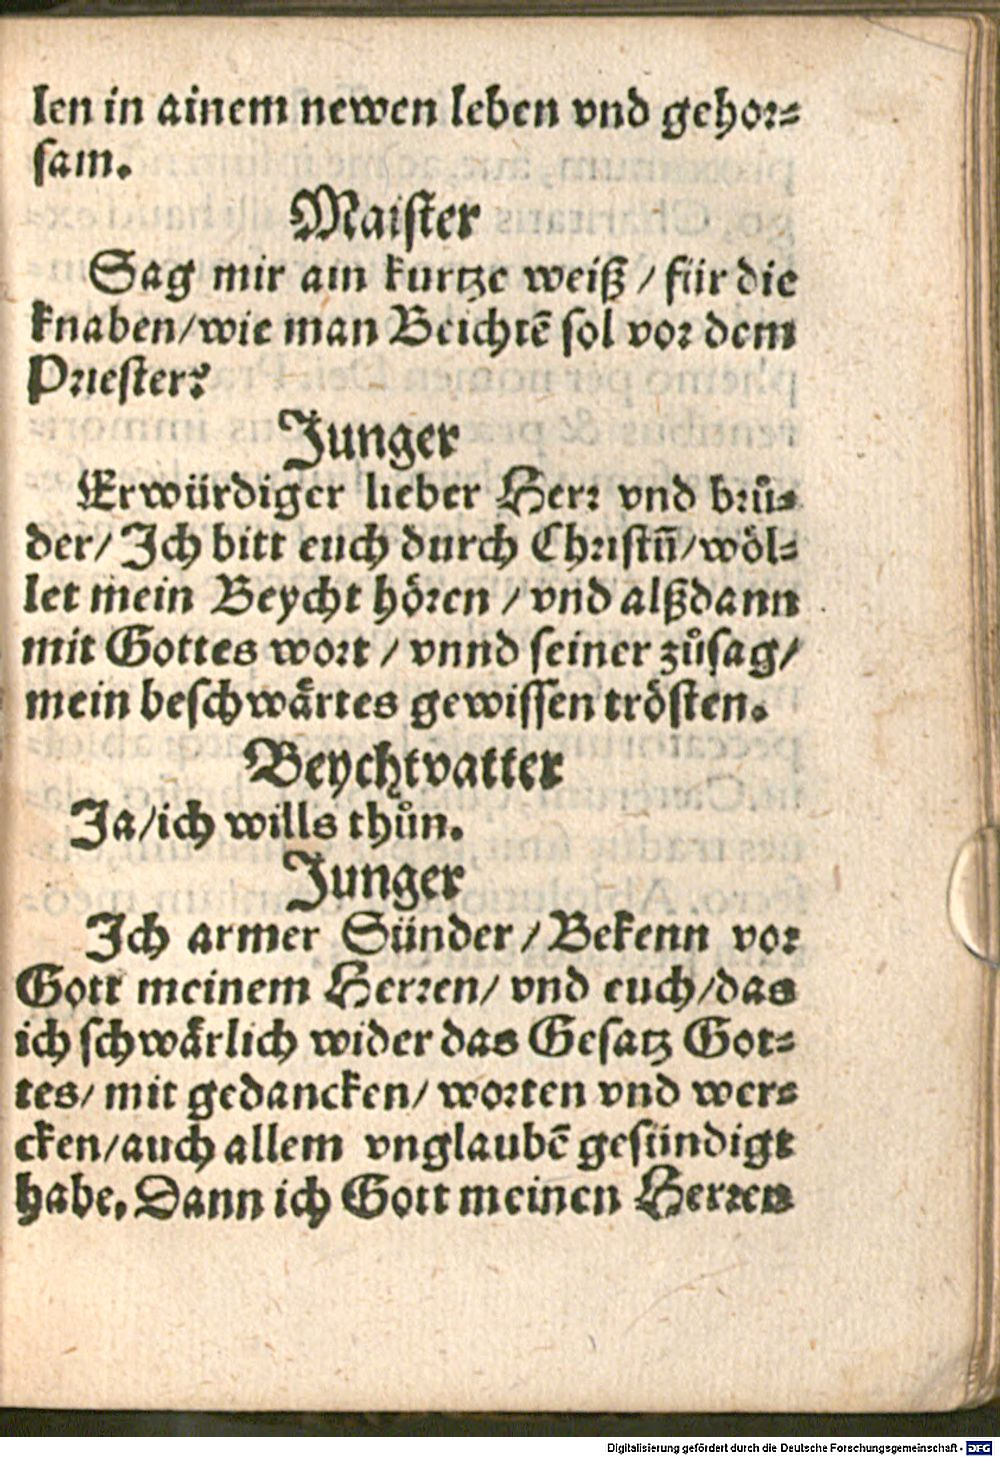 len in ainem newen leben vnd gehor⸗
sam.
Maister
Sag mir am kurtze weiß / für die
knaben/wie man Beichtē sol vor dem
Priester?
Junger
Erwürdiger lieber Herr vnd brů⸗
der/ Jch bitt euch durch Christū/wöl⸗
let mein Beycht hören / vnd alßdann
mit Gottes wort / vnnd seiner zůsag/
mein beschwårtes gewissen trösten.
Beychtvatter
Ja/ich wills thůn.
Junger
Jch armer Sünder / Bekenn vor
Gott meinem Herren/ vnd euch/das
ich schwårlich wider das Gesatz Got⸗
tes/ mit gedancken/ worten vnd wer⸗
cken/auch allem vnglaubē gesündigt
habe. Dann ich Gott meinen Herren
Digitalisierung gefördert durch die Deutsche Forschungsgemeinschaft - DFG